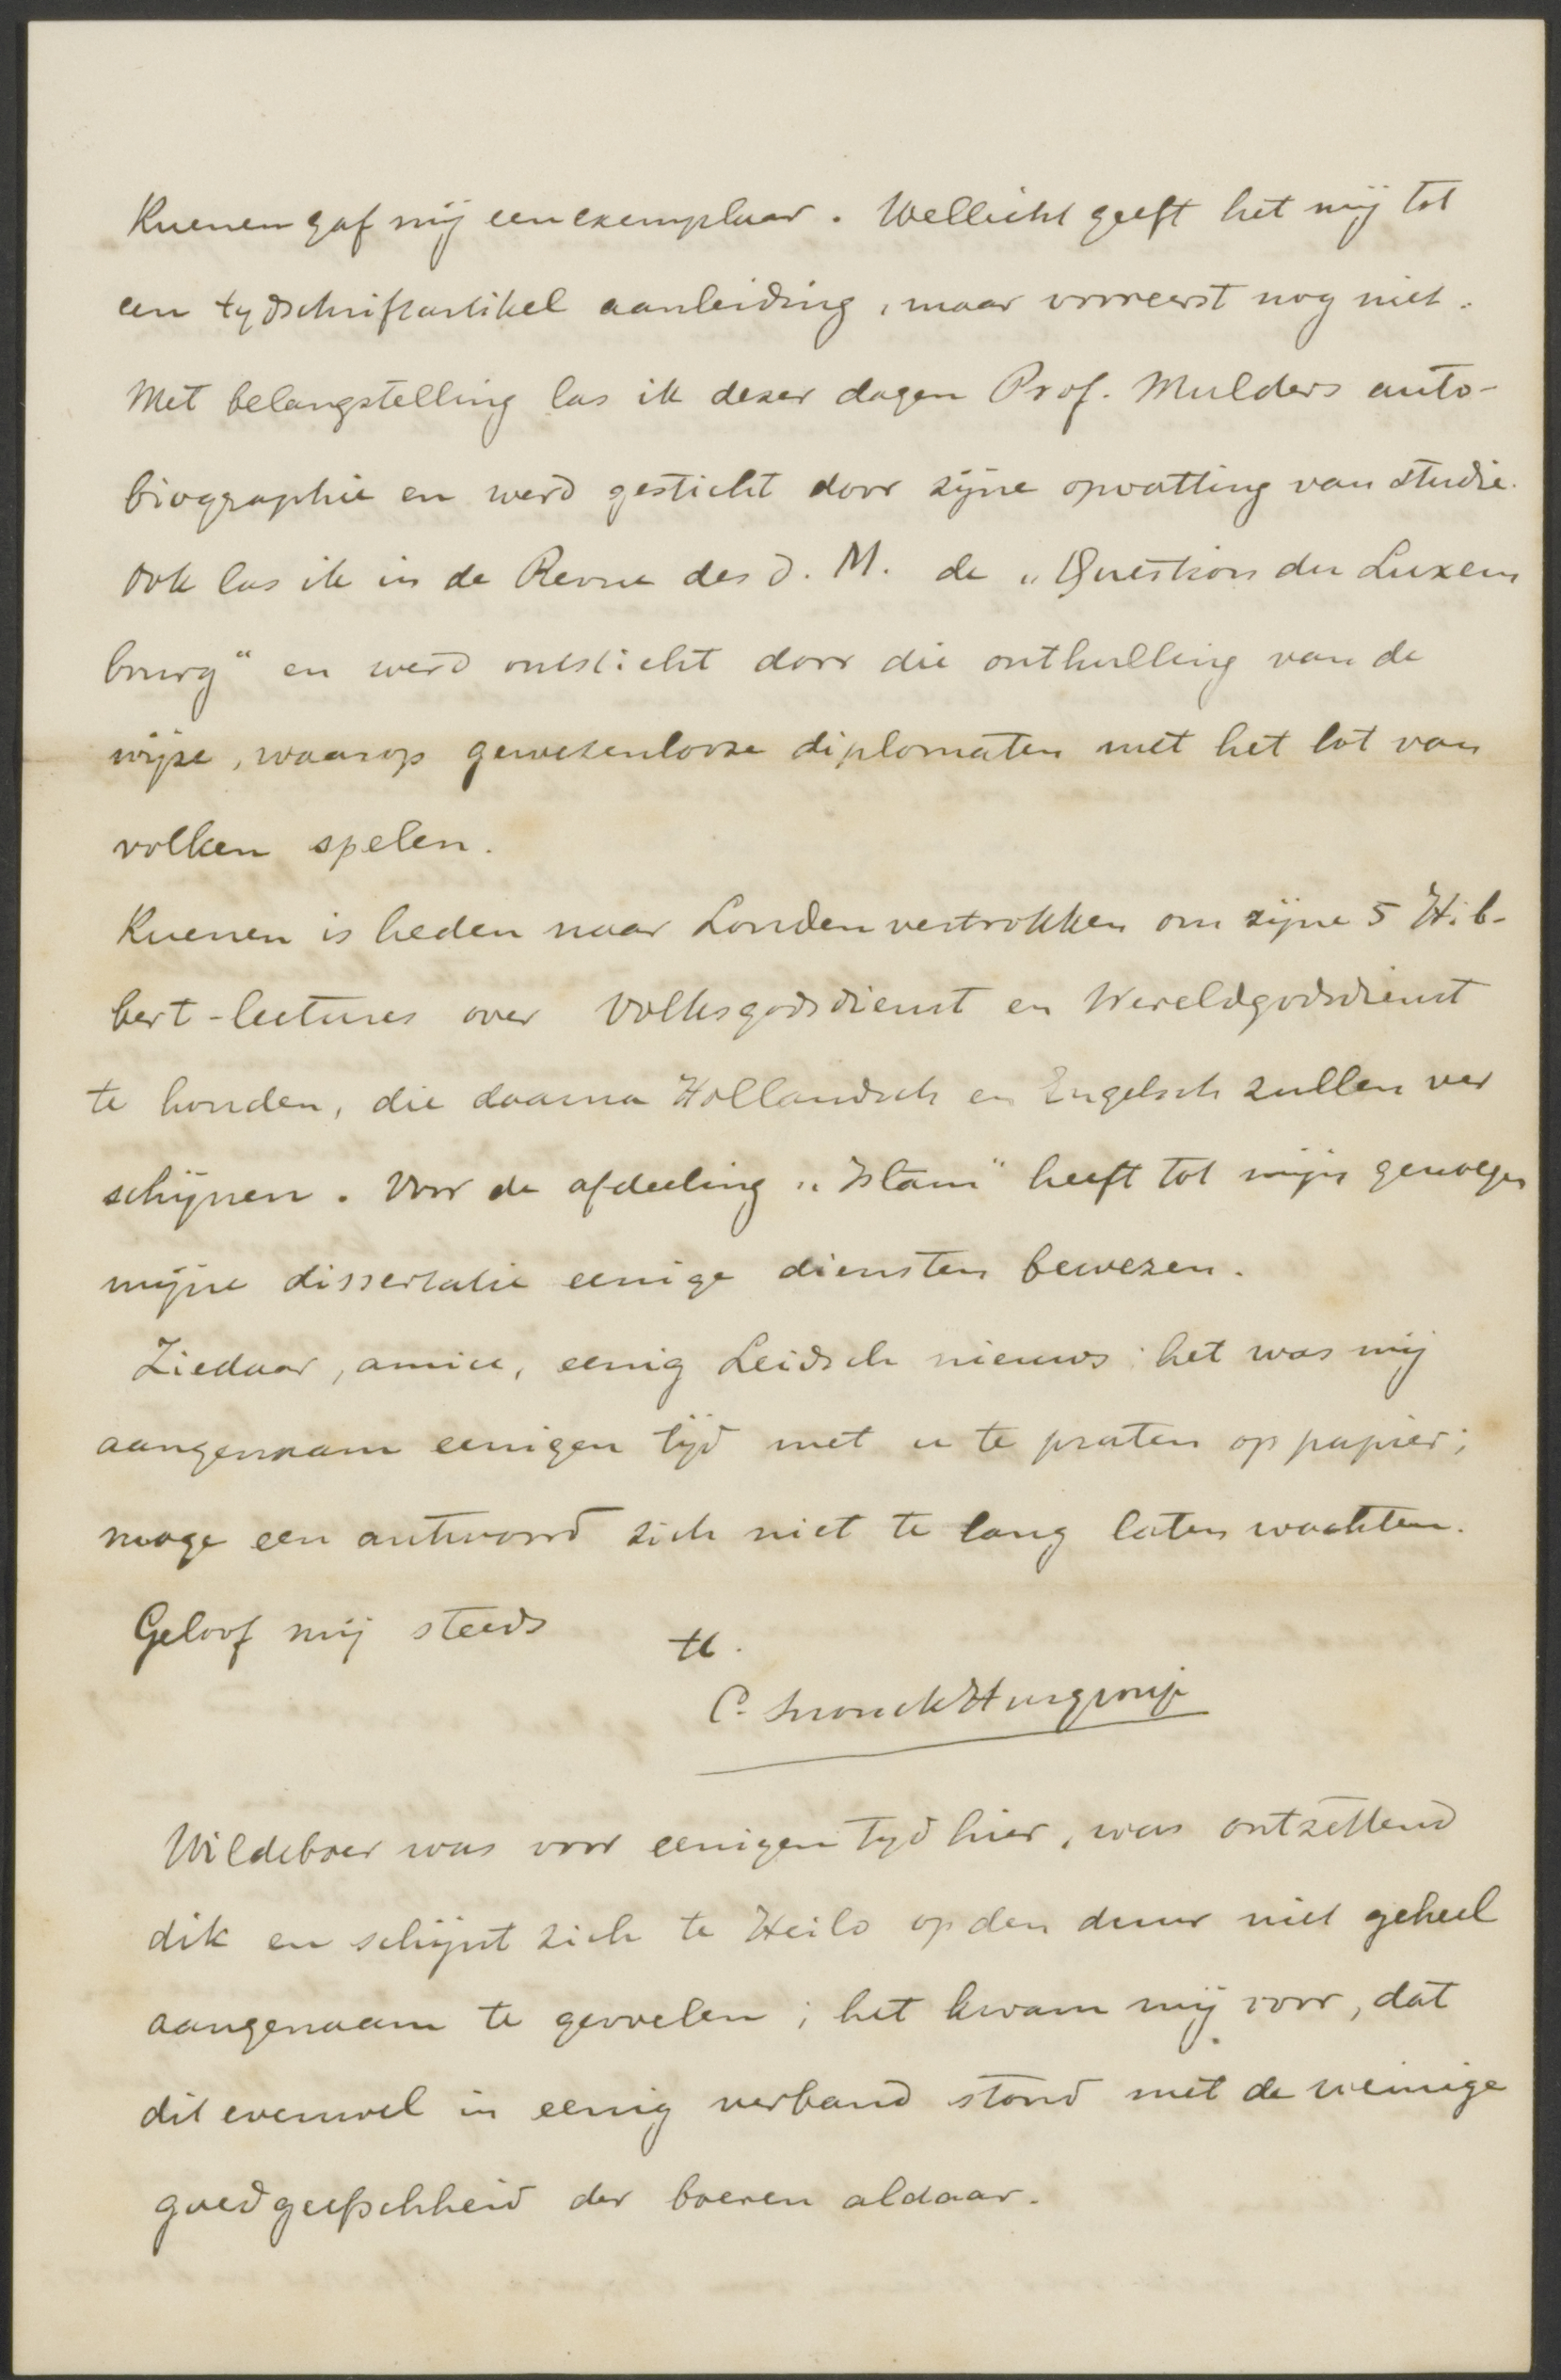 Kuenen gaf mij een exemplaar. Wellicht geeft het mij tot
een tydschriftartikel aanleiding, maar vooreerst nog niet.
Met belangstelling las ik dezer dagen Prof. Mulders auto-
biographie en werd gesticht door zijne opvatting van studie.
Ook las ik in de Revue des d. M. de „Question du Luxem
bourg“ en werd ontsticht door die onthulling van de
wijze, waarop gewetenlooze diplomaten met het lot van
volken spelen.
Kuenen is heden naar Londen vertrokken om zijne 5 Hib-
bert-lectures over Volksgodsdienst en Wereldgodsdienst
te houden, die daarna Hollandsch en Engelsch zullen ver
schijnen. Voor de afdeeling „Islam“ heeft tot mijn genoegen
mijne dissertatie eenige diensten bewezen.
Ziedaar, amice, eenig Leidsch nieuws; het was mij
aangenaam eenigen tijd met u te praten op papier;
moge een antwoord zich niet te lang laten wachten.
Geloof mij steeds
tt.
C. Snouck Hurgronje
Wildeboer was voor eenigen tyd hier, was ontzettend
dik en schijnt zich te Heilo op den duur niet geheel
aangenaam te gevoelen; het kwam mij voor, dat
dit evenwel in eenig verband stond met de weinige
goedgeefschheid der boeren aldaar.